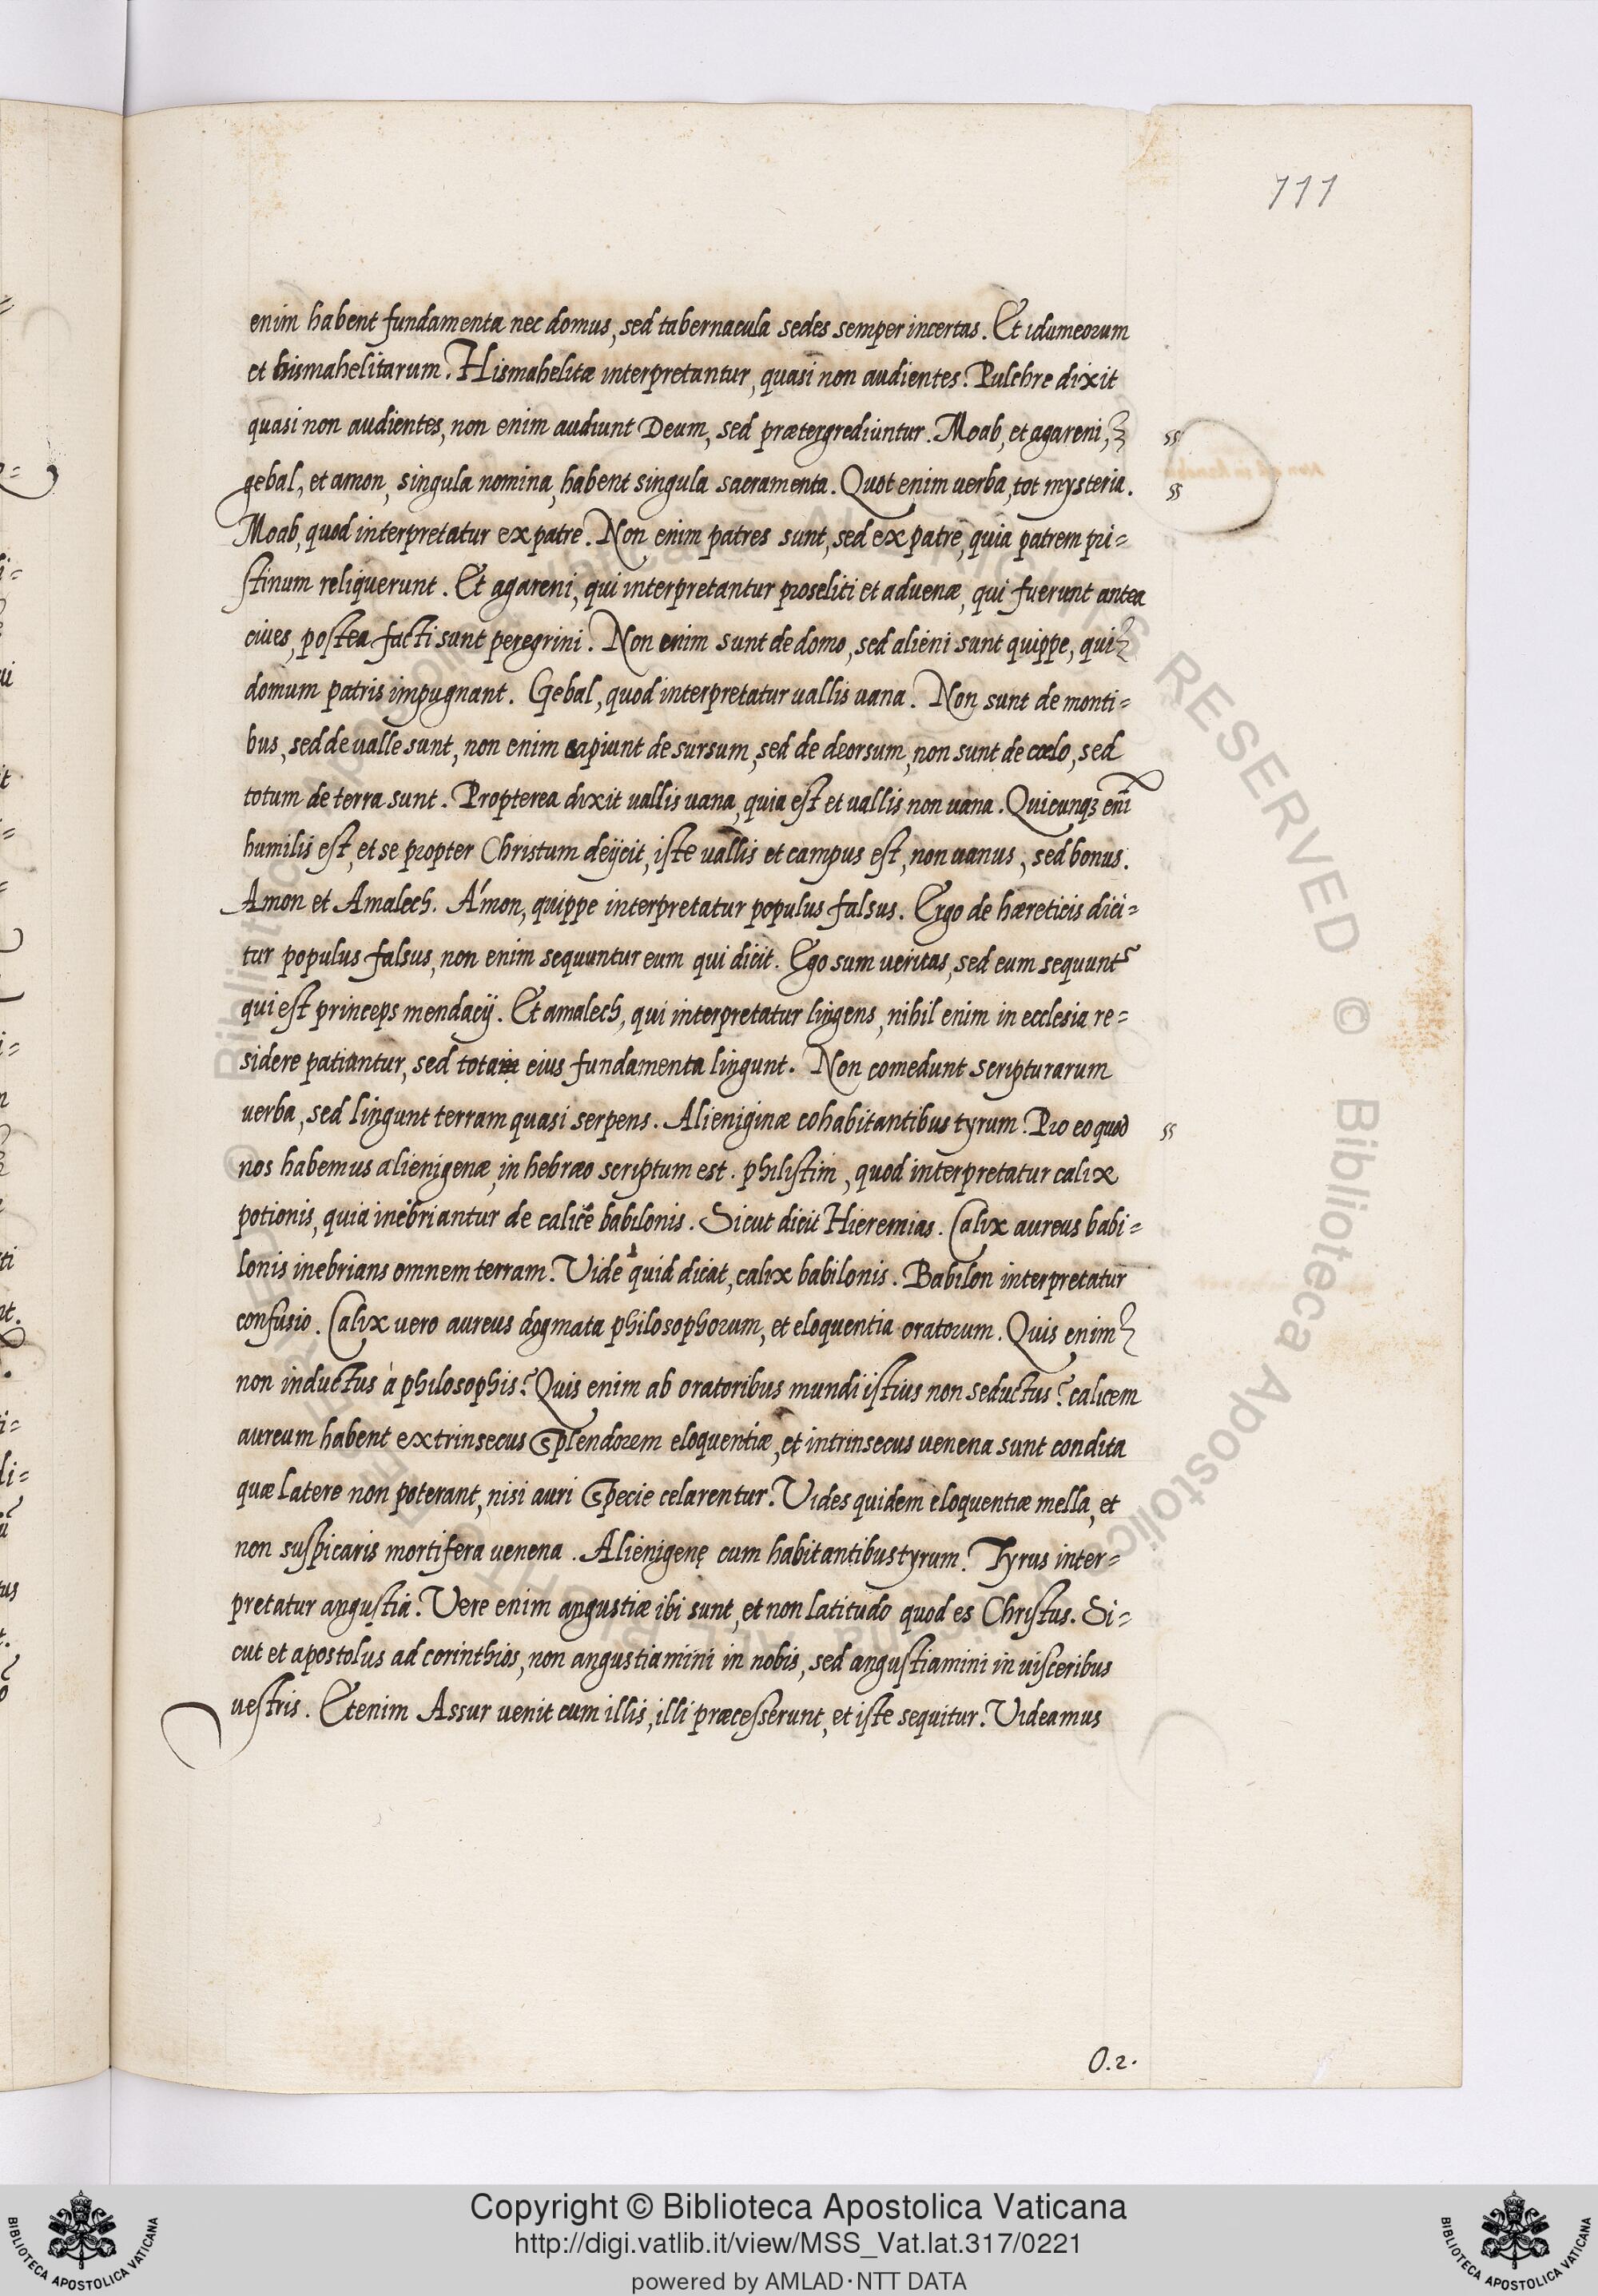 111
enim habent fundamenta nec domus, sed tabernacula sedes semper incertas. Et idumeorum
et hismahelitarum. Hismahelitæ interpretantur, quasi non audientes. Pulchre dixit
quasi non audientes, non enim audiunt Deum, sed prætergrediuntur. Moab, et agareni,
gebal, et amon, singula nomina, habent singula sacramenta. Quot enim uerba, tot mysteria.
Moab, quod interpretatur ex patre. Non enim patres sunt, sed ex patre, quia patrem pri=
stinum reliquerunt. Et agareni, qui interpretantur proseliti et aduenæ, qui fuerunt antea
ciues, postea facti sunt peregrini. Non enim sunt de domo, sed alieni sunt quippe, qui
domum patris impugnant. Gebal, quod interpretatur uallis uana. Non sunt de monti=
bus, sed de ualle sunt, non enim sapiunt de sursum, sed de deorsum, non sunt de cœlo, sed
totum de terra sunt. Propterea dixit uallis uana, quia est et uallis non uana. Quicunqȝ enī
humilis est, et se propter Christum deijcit, iste uallis et campus est, non uanus, sed bonus.
Amon et Amalech. Amon, quippe interpretatur populus falsus. Ergo de hæreticis dici=
tur populus falsus, non enim sequuntur eum qui dicit. Ego sum ueritas, sed eum sequunt᷑
qui est princeps mendacij. Et amalech, qui interpretatur lingens, nihil enim in ecclesia re=
sidere patiuntur, sed totam eius fundamenta lingunt. Non comedunt scripturarum
uerba, sed lingunt terram quasi serpens. Alieniginæ cohabitantibus tyrum. Pro eo quod
nos habemus alienigenæ, in hebræo scriptum est. philistim, quod interpretatur calix
potionis, quia inebriantur de calice babilonis. Sicut dicit Hieremias. Calix aureus babi=
lonis inebrians omnem terram. Vide quid dicat, calix babilonis. Babilon interpretatur
confusio. Calix uero aureus dogmata philosophorum, et eloquentia oratorum. Quis enim
non inductus à philosophis? Quis enim ab oratoribus mundi istius non seductus? calicem
aureum habent extrinsecus splendorem eloquentiæ, et intrinsecus uenena sunt condita
quæ latere non poterant, nisi auri specie celarentur. Vides quidem eloquentiæ mella, et
non suspicaris mortifera uenena. Alienigenę cum habitantibus tyrum. Tyrus inter=
pretatur angustia. Vere enim angustiæ ibi sunt, et non latitudo quod es Christus. Si=
cut et apostolus ad corinthios, non angustiamini in nobis, sed angustiamini in uisceribus
uestris. Etenim Assur uenit cum illis, illi præcesserunt, et iste sequitur. Videamus
O.2.
Copyright © Biblioteca Apostolica Vaticana
http://digi.vatlib.it/view/MSS_Vat.lat.317/0221
powered by AMLAD·NTT DATA
BIBLIOTECA APOSTOLICA VATICANA
BIBLIOTECA APOSTOLICA VATICANA